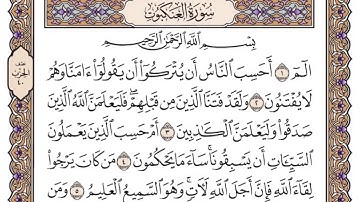 سُورَةُ العَنكَبُوتِ
بِسْمِ ٱللَّهِ ٱلرَّحْمَٰنِ ٱلرَّحِيمِ
الٓمٓ ١ أَحَسِبَ ٱلنَّاسُ أَن يُتْرَكُوٓا۟ أَن يَقُولُوٓا۟ ءَامَنَّا وَهُمْ
لَا يُفْتَنُونَ ٢ وَلَقَدْ فَتَنَّا ٱلَّذِينَ مِن قَبْلِهِمْ ۖ فَلَيَعْلَمَنَّ ٱللَّهُ ٱلَّذِينَ
صَدَقُوا۟ وَلَيَعْلَمَنَّ ٱلْكَٰذِبِينَ ٣ أَمْ حَسِبَ ٱلَّذِينَ يَعْمَلُونَ
ٱلسَّيِّـَٔاتِ أَن يَسْبِقُونَا ۚ سَآءَ مَا يَحْكُمُونَ ٤ مَن كَانَ يَرْجُوا۟
لِقَآءَ ٱللَّهِ فَإِنَّ أَجَلَ ٱللَّهِ لَءَاتٍ ۚ وَهُوَ ٱلسَّمِيعُ ٱلْعَلِيمُ ٥ وَمَن